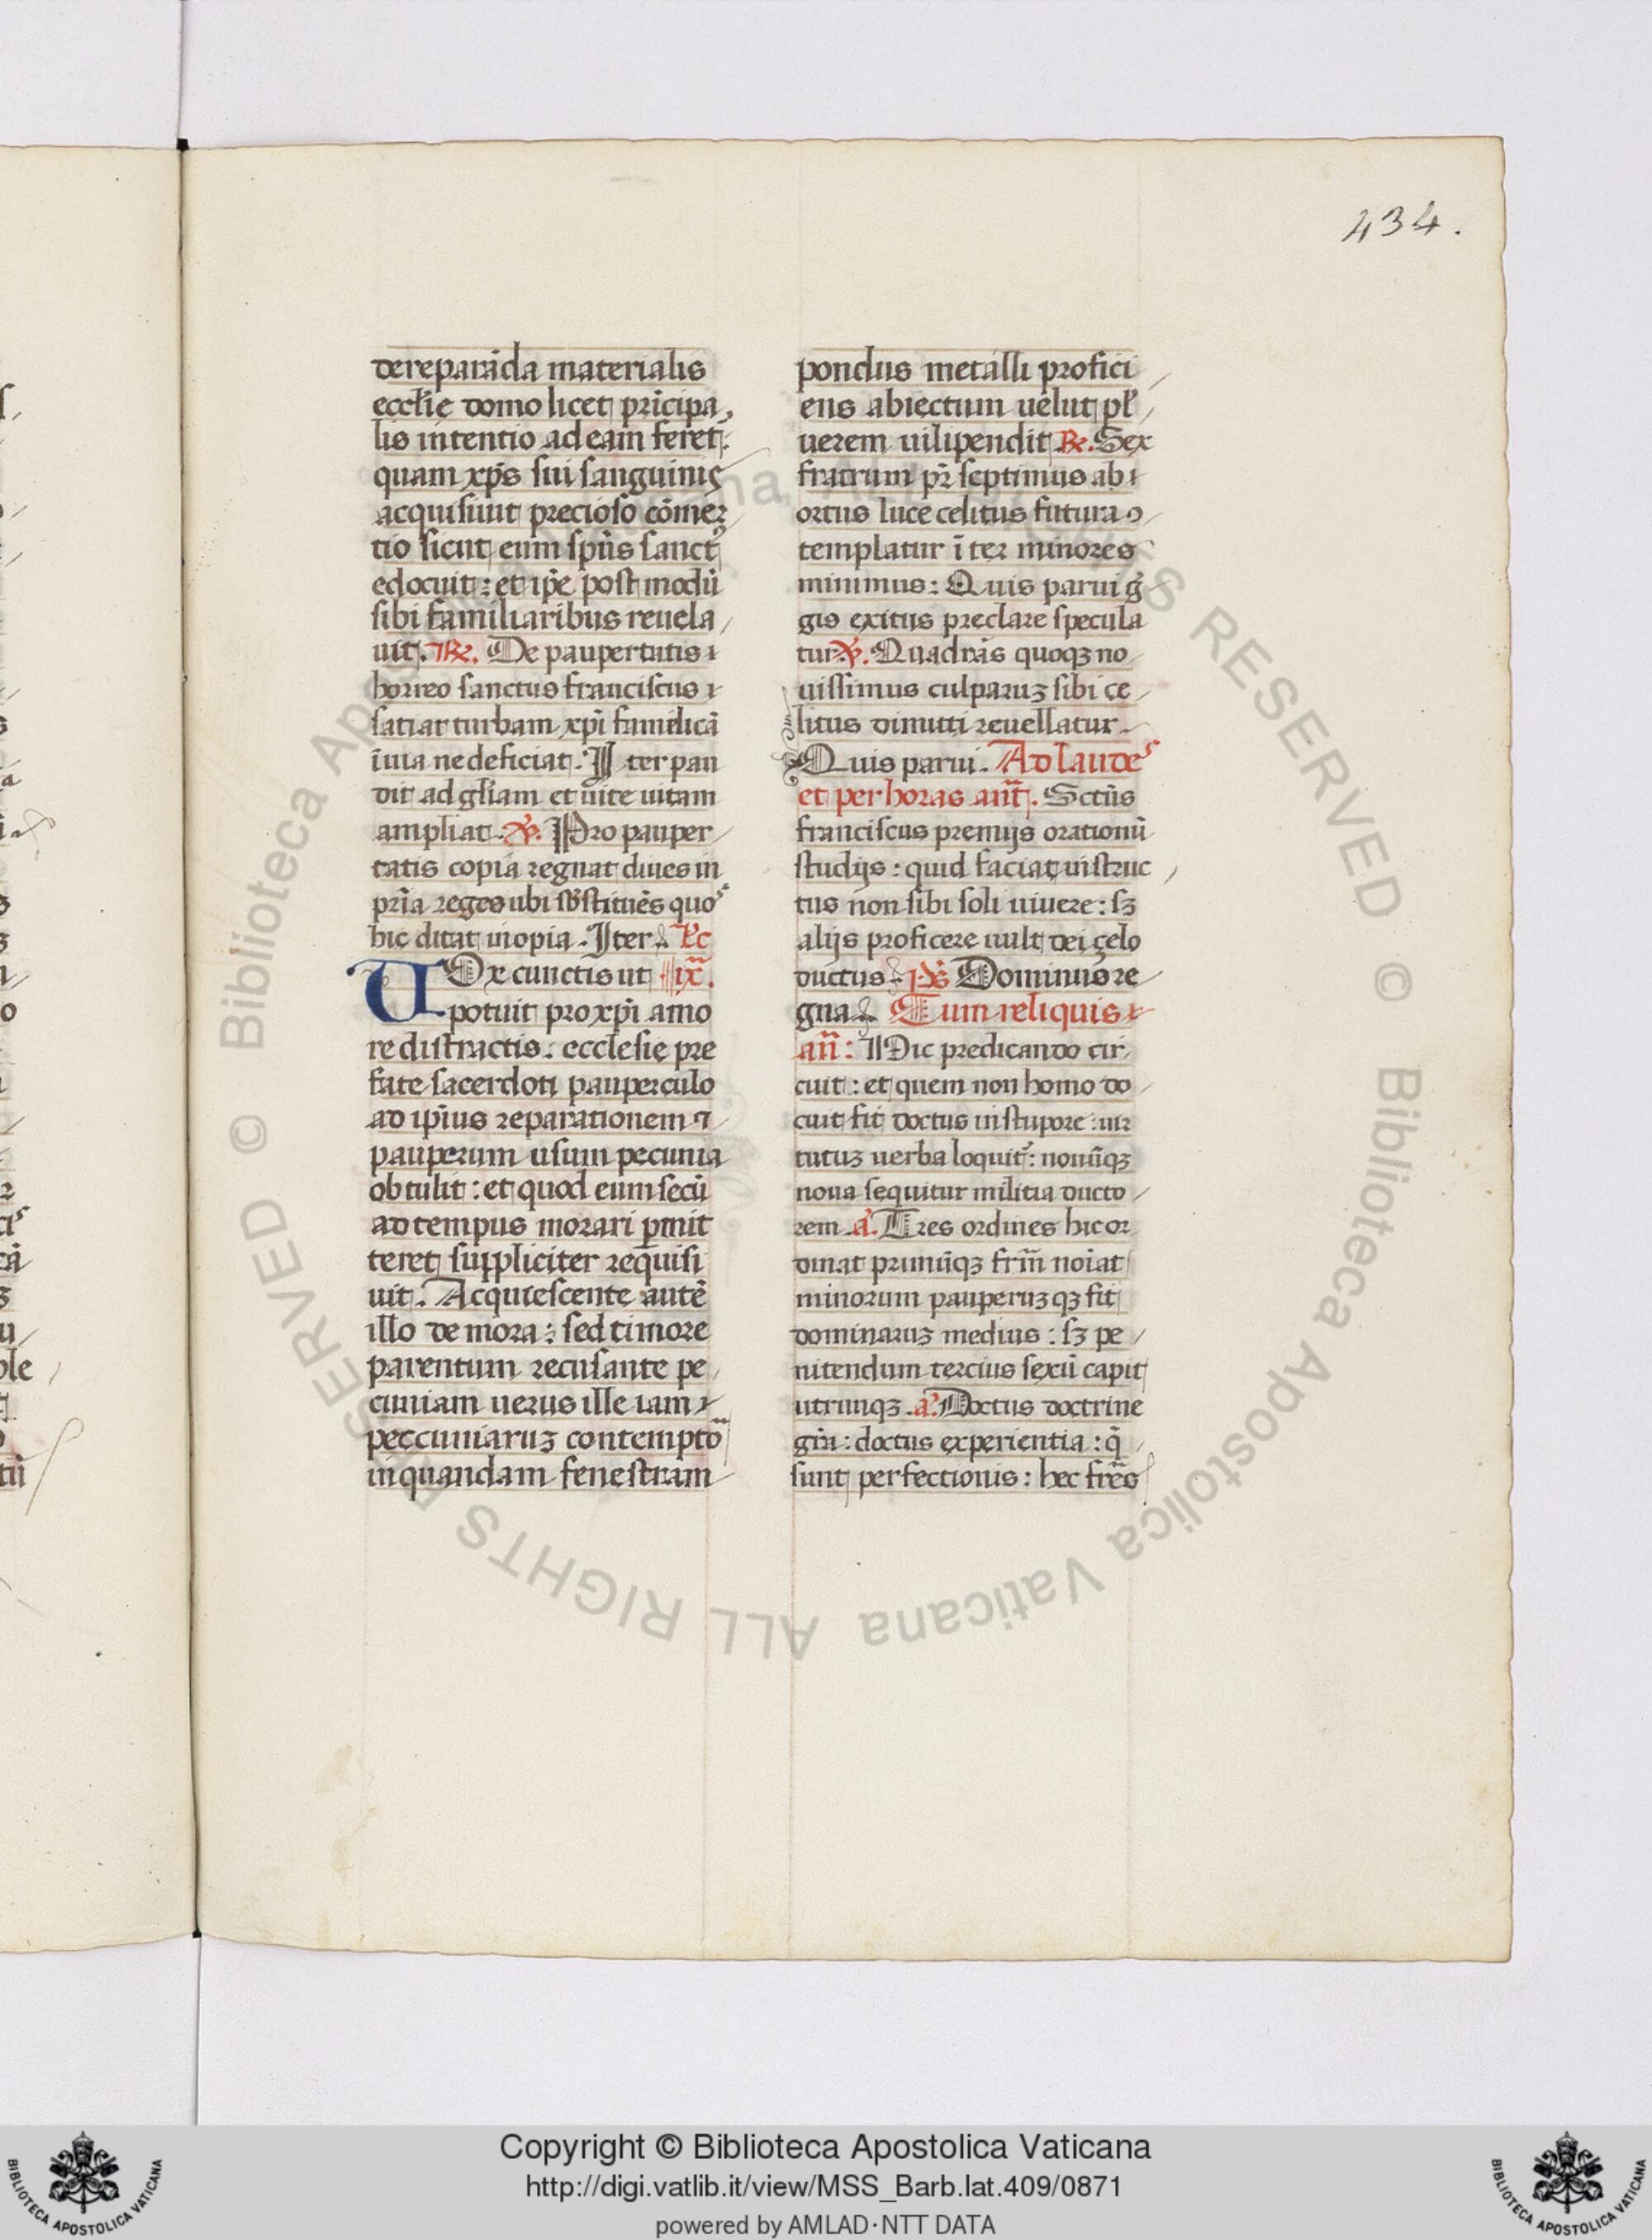 434.
de reparãda materialis
eccl̃ie domo licet prĩcipa
lis intentio ad eam feret͛:
quam xp̃s sui sanguinis
acquisiuit precioso cõmer
tio sicut eum sp̃us sanctꝰ
edocuit: et ip̃e postmodũ
sibi familiaribus reuela
uit. ℞. De paupertatis
horreo sanctus franciscus
satiat turbam xp̃i famelicã
ĩ uia ne deficiat. Iter pan
dit ad gl̃iam et uite uitam
ampliat. ℣. Pro pauper
tatis copia regnat diues in
pr̃ia reges ubi sb̃stituẽs quos
hic ditat inopia. Iter. Lc̃
Uox cunctis ut ix.
potuit pro xp̃i amo
re distractis: ecclesie pre
fate sacerdoti pauperculo
ad ip̃ius reparationem ⁊
pauperum usum pecunia
obtulit: et quod eum secũ
ad tempus morari ꝑmit
teret suppliciter requisi
uit. Acquiescente autẽ
illo de mora: sed timore
parentum recusante pe
cuniam uerus ille iam
peccuniaruꝫ contempto
in quandam fenestram
pondus metalli profici
ens abiectum uelut pl̃
uerem uilipendit. ℞. Sex
fratrum pr̃ septimus ab
ortus luce celitus futura ꝯ
templatur ĩter minores
minimus: Quis parui g̃
gis exitus preclare specula
tur ℣. Quadrãs quoqꝫ no
uissimus culparuꝫ sibi ce
litus dimitti reuellatur
Quis parui. Ad laudes
et per horas añt. Sctũs
franciscus premijs orationũ
studijs: quid faciat instruc
tus non sibi soli uiuere: sꝫ
alijs proficere uult dei çelo
ductus. Ps̃ Dominus re
gna. Cum reliquis
añ: Hic predicando cir
cuit: et quem non homo do
cuit fit doctus in stupore: uir
tutuꝫ uerba loquit͛: nouũqꝫ
noua sequitur militia ducto
rem. a͛. Tres ordines hic or
dinat primũqꝫ frm̃ noĩat
minorum pauperuꝫqꝫ fit
dominaruꝫ medius: sꝫ pe
nitendum tercius sexũ capit
utrunqꝫ. a͛. Doctus doctrine
gr̃a: doctus experientia: q̃
sunt perfectionis: hec frẽs
© Biblioteca Apostolica Vaticana ALL RIGHTS RESERVED © Biblioteca Apostolica Vaticana ALL RIGHTS RESERVED
Copyright © Biblioteca Apostolica Vaticana
http://digi.vatlib.it/view/MSS_Barb.lat.409/0871
powered by AMLAD·NTT DATA
BIBLIOTECA APOSTOLICA VATICANA
BIBLIOTECA APOSTOLICA VATICANA